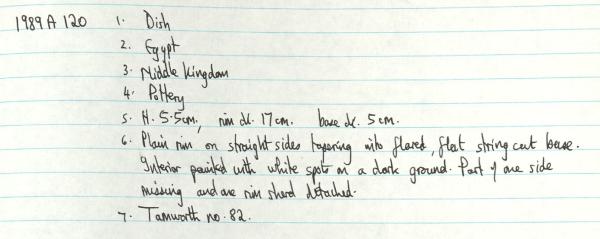 1989 A 120 1. Dish
2. Egypt
3. Middle Kingdom
4. Pottery
5. H. 5.5cm, rim di. 17cm. base di. 5cm.
6. Plain rim on straight sides tapering into flared, flat string cut base.
Interior painted with white spots on a dark ground. Part of one side
missing and one rim sherd detached.
7. Tamworth no. 82.